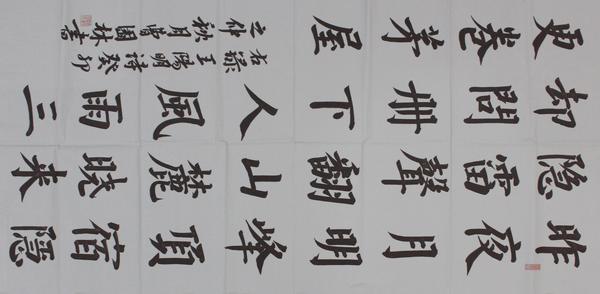 昨夜月明峰頂宿隐
隐雷聲翻山麓曉來
却問山下人風雨三
更卷茅屋
右録王陽明詩癸卯
之仲秋月曾國林書